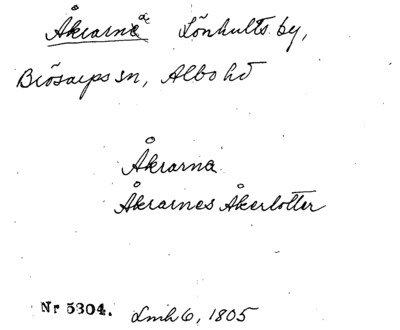 Åkrarne Lönhults by,
Brösarps sn, Albo hd
Åkrarna
Åkrarnes Åkerlotter
Nr 5304. Lmh 6, 1805